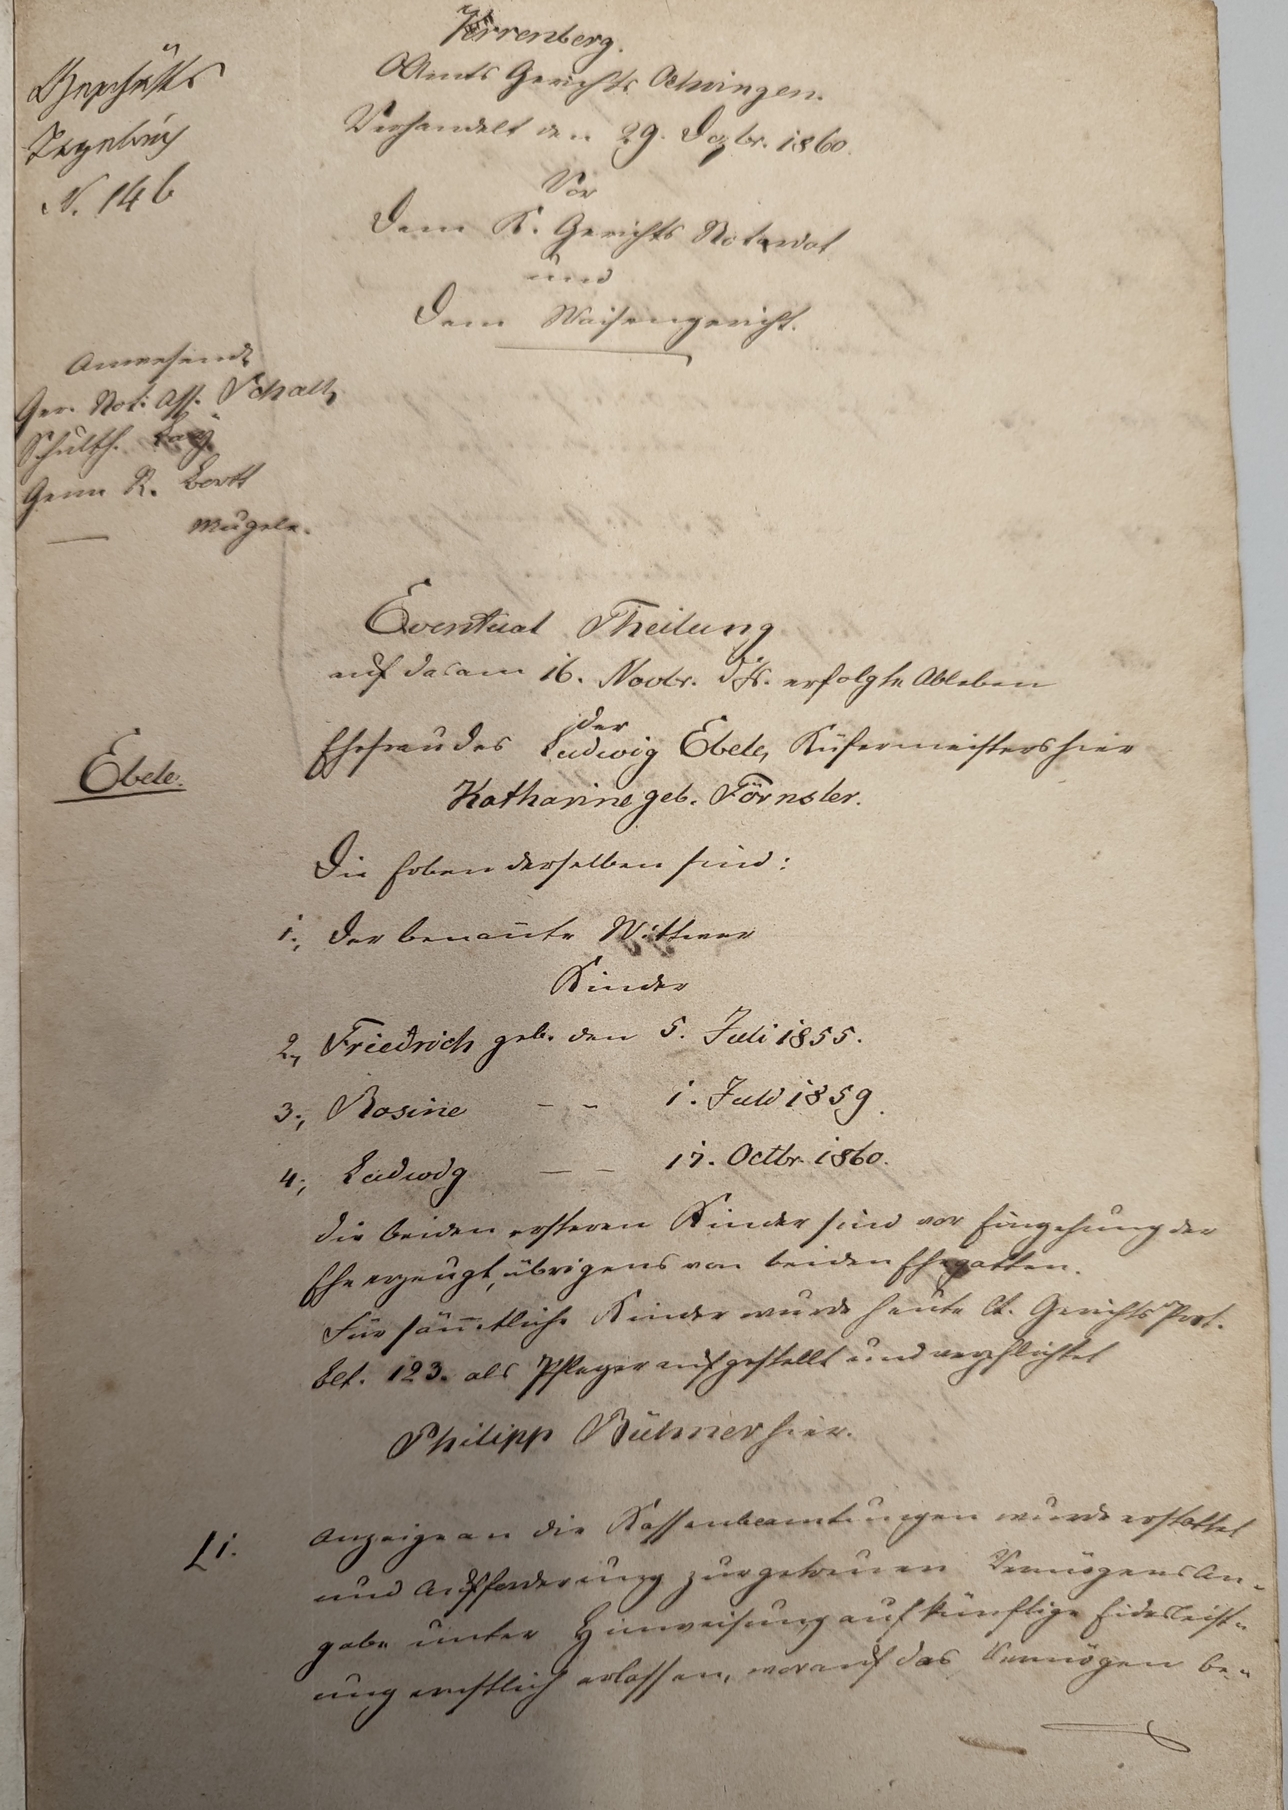 Verrenberg.
OAmts Gerichts Oehringen.
Verhandelt den 29. Dezbr. 1860.
Vor
dem K. Gerichts Notariat
und
dem Waisengericht.
Geschäfts
Tagebuch
N. 146
Anwesende
Ger. Not. Ass. Schall,
Schulth.
Gem R.
Mugele.
Eventual Theilung
auf das am 16. Novbr. d. Js. erfolgte Ableben
der
Ehefrau des Ludwig Ebele, Küfermeisters hier
Katharine geb. Förnsler.
Ebele.
Die Erben derselben sind:
1., der benannte Wittwer
Kinder
2., Friedrich geb. den 5. Juli 1855.
3., Rosine — — 1. Juli 1859.
4., Ludwig — — 17. Octbr. 1860.
Die beiden ersteren Kinder sind vor Eingehung der
Ehe erzeugt, übrigens von beiden Ehegatten.
Für sämtliche Kinder wurde heute lt. Gerichts Prot.
Blt. 123. als Pfleger aufgestellt und verpflichtet
Philipp hier.
§ 1.
Anzeige an die Kassenbeamtungen wurde erstattet
und Aufforderung zur getreuen Vermögens An-
gabe unter Hinweisung auf künftige Eidesleist-
ung erlassen, worauf das Vermögen be-